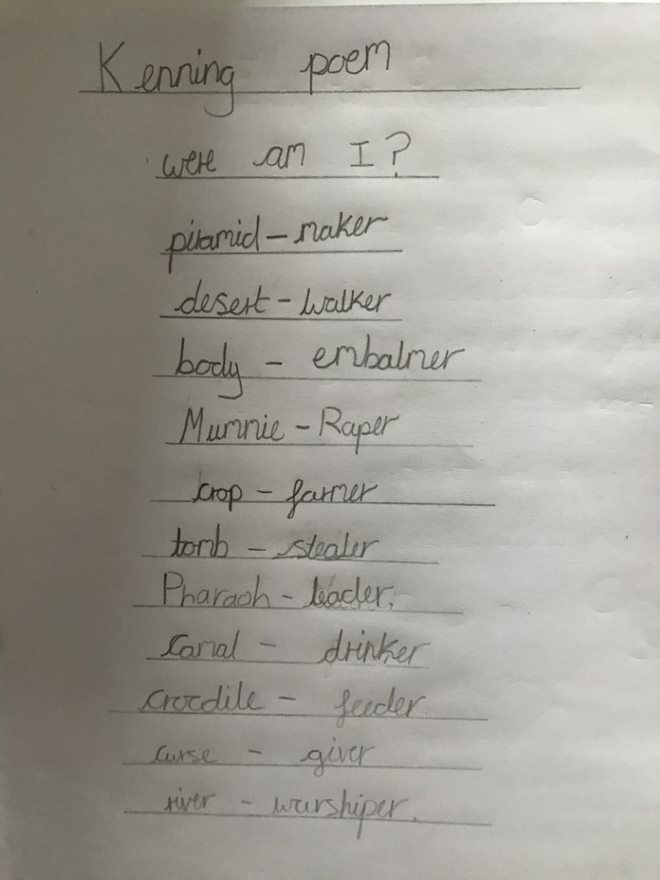 Kenning poem
were am I?
piramid - maker
desert - walker
body - embalmer
Mummie - Raper
crop - farmer
tomb - stealer
Pharaoh - leader.
Canal - drinker
crocdile - feeder
curse - giver
river - warshiper.